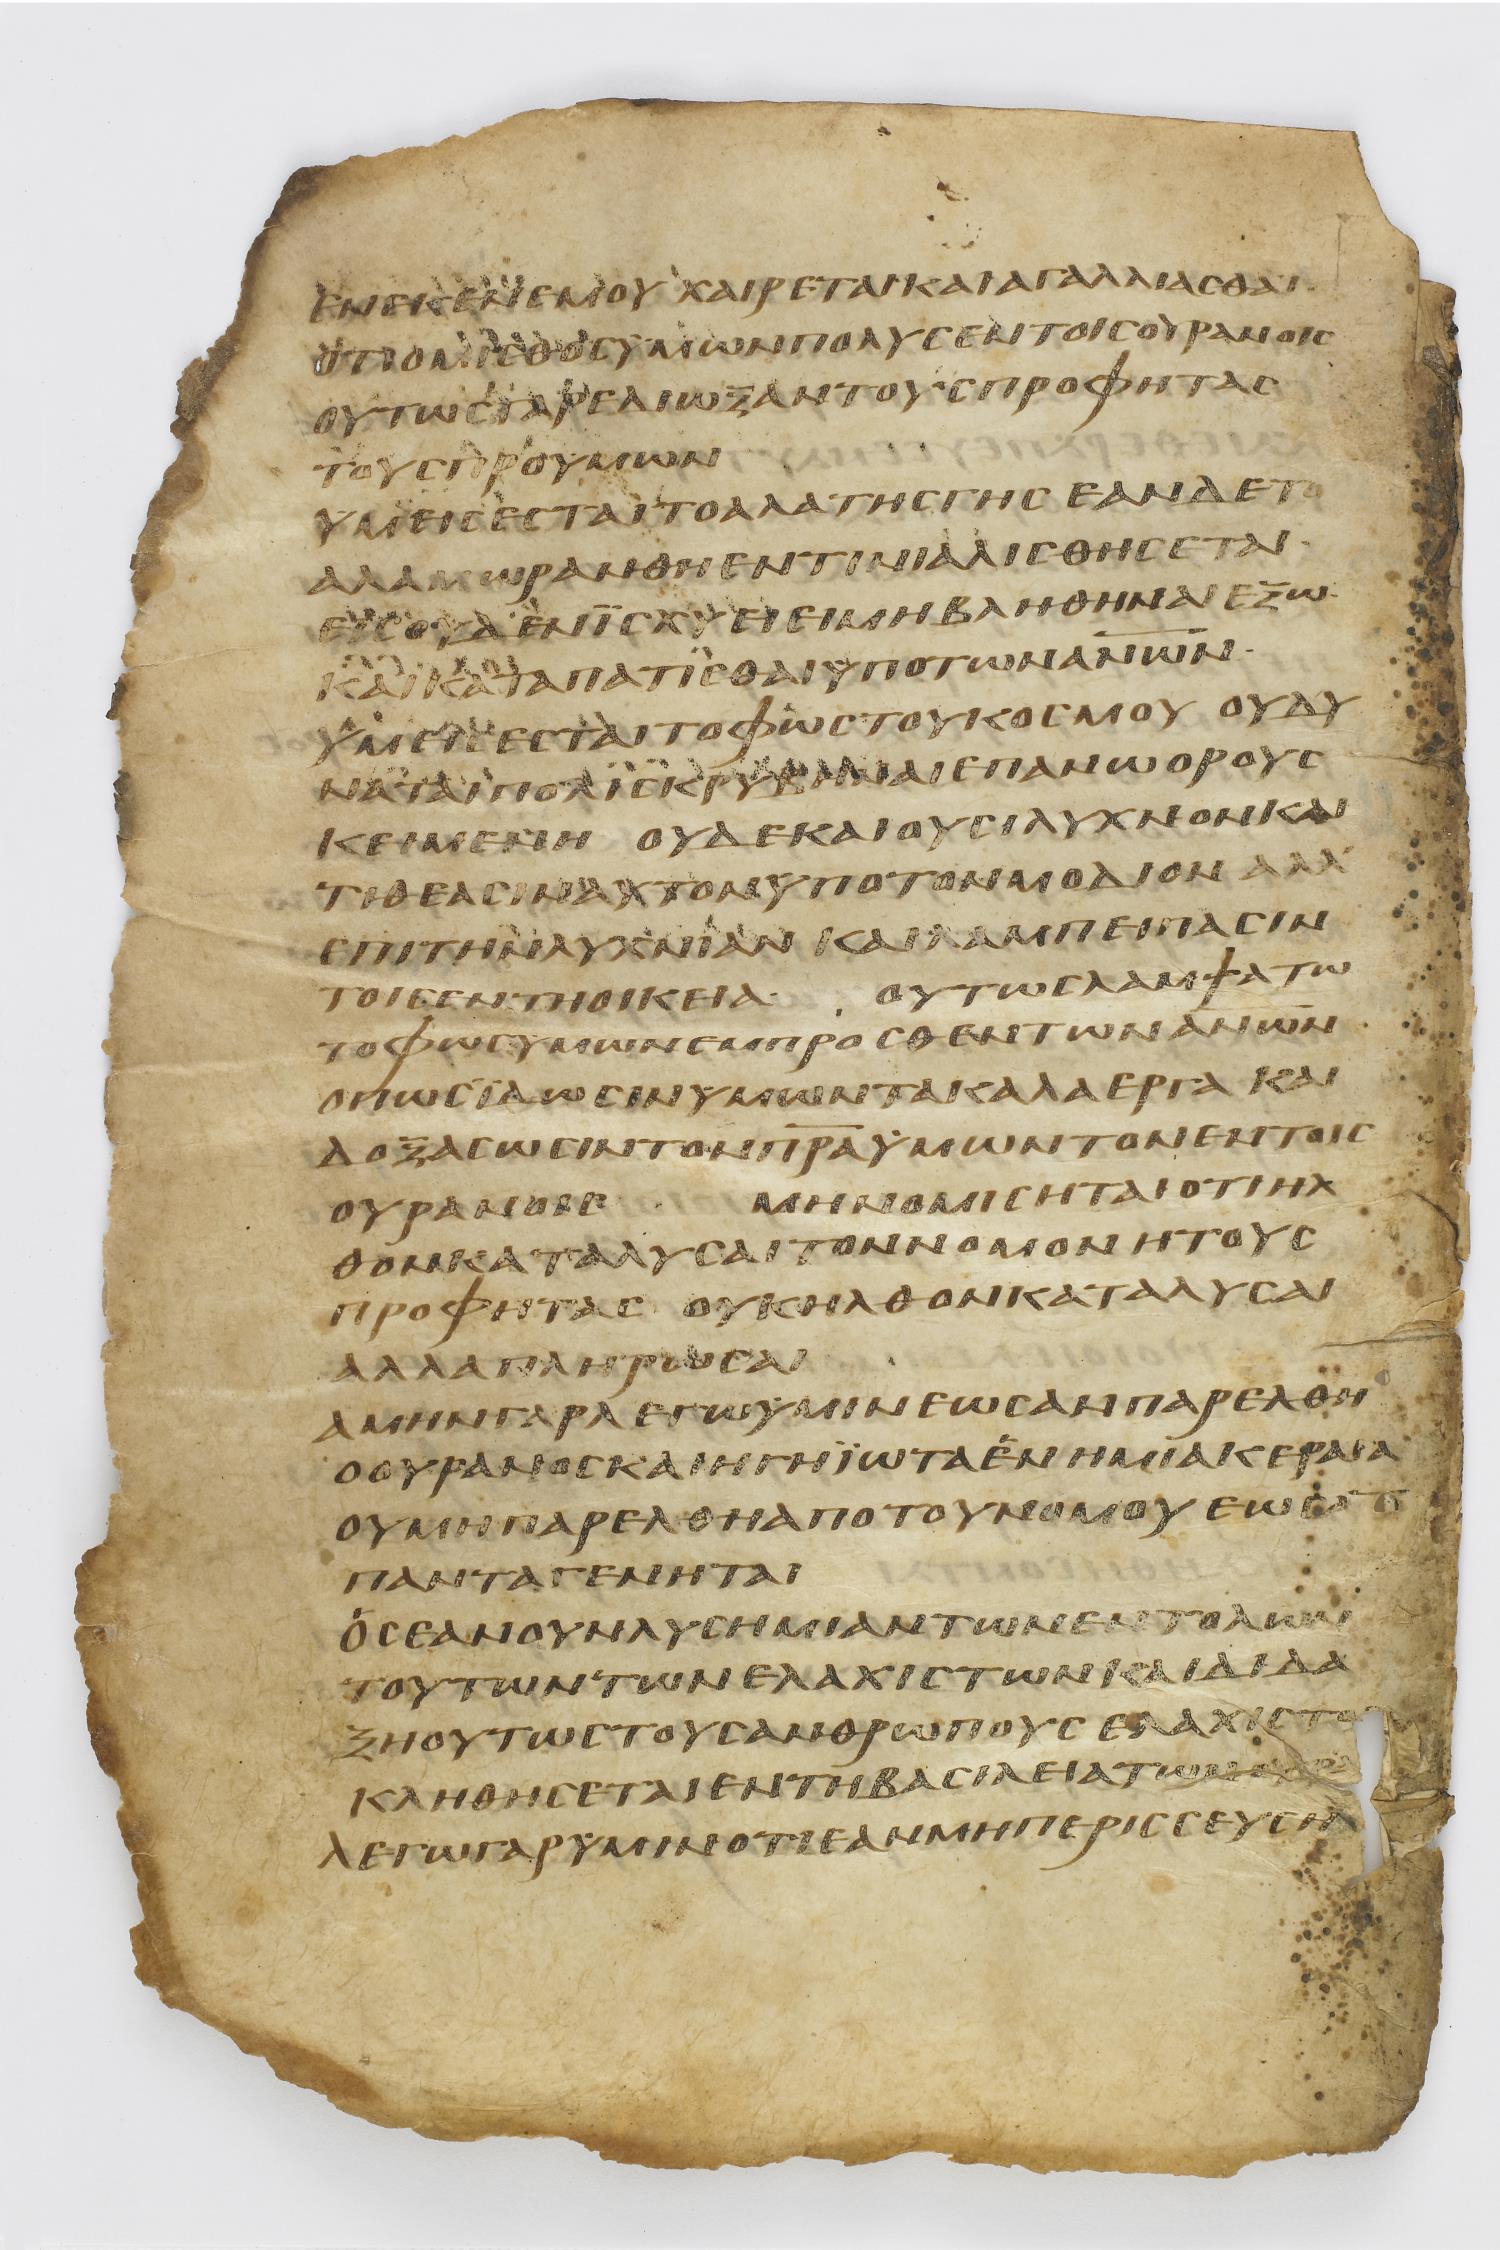 ΕΝΕΚΕΝΕΜΟΥΧΑΙΡΕΤΑΙΚΑΙΑΓΑΛΛΙΑСΘΑΙ·
ΟΤΙΟΜΙСΘΟСΥΜΩΝΠΟΛΥСΕΝΤΟΙСΟΥΡΑΝΟΙС
ΟΥΤΩСΓΑΡΕΔΙΩΞΑΝΤΟΥСΠΡΟΦΗΤΑС
ΤΟΥСΠΡΟΥΜΩΝ
ΥΜΕΙСΕСΤΑΙΤΟΑΛΑΤΗСΓΗС ΕΑΝΔΕΤΟ
ΑΛΑΜΩΡΑΝΘΗΕΝΤΙΝΙΑΛΙСΘΗСΕΤΑΙ·
ΕΙСΟΥΔΕΝΪСΧΥΕΙΕΙΜΗΒΛΗΘΗΝΑΙΕΞΩ·
ΚΑΙΚΑΤΑΠΑΤΙСΘΑΙΥΠΟΤΩΝΑΝ̅Ω̅Ν̅·
ΥΜΕΙСΕСΤΑΙΤΟΦΩСΤΟΥΚΟСΜΟΥ ΟΥΔΥ
ΝΑΤΑΙΠΟΛΙСΚΡΥΒΗΝΑΙΕΠΑΝΩΟΡΟΥС
ΚΕΙΜΕΝΗ ΟΥΔΕΚΑΙΟΥСΙΛΥΧΝΟΝΚΑΙ
ΤΙΘΕΑСΙΝΑΥΤΟΝΥΠΟΤΟΝΜΟΔΙΟΝ ΑΛΛ
ΕΠΙΤΗΝΛΥΧΝΙΑΝ ΚΑΙΛΑΜΠΕΙΠΑСΙΝ
ΤΟΙСΕΝΤΗΟΙΚΕΙΑ· ΟΥΤΩСΛΑΜΨΑΤΩ
ΤΟΦΩСΥΜΩΝΕΜΠΡΟСΘΕΝΤΩΝΑΝ̅Ω̅Ν̅·
ΟΠΩСΪΔΩСΙΝΥΜΩΝΤΑΚΑΛΑΕΡΓΑ ΚΑΙ
ΔΟΞΑСΩСΙΝΤΟΝΠ̅Ρ̅Α̅ΥΜΩΝΤΟΝΕΝΤΟΙС
ΟΥΡΑΝΟΙС ΜΗΝΟΜΙСΗΤΑΙΟΤΙΗΛ
ΘΟΝΚΑΤΑΛΥСΑΙΤΟΝΝΟΜΟΝΗΤΟΥС
ΠΡΟΦΗΤΑС ΟΥΚΗΛΘΟΝΚΑΤΑΛΥСΑΙ
ΑΛΛΑΠΛΗΡΩСΑΙ
ΑΜΗΝΓΑΡΛΕΓΩΥΜΙΝΕΩСΑΝΠΑΡΕΛΘΗ
ΟΟΥΡΑΝΟСΚΑΙΗΓΗΪΩΤΑΕΝΗΜΙΑΚΕΡΑΙΑ
ΟΥΜΗΠΑΡΕΛΘΗΑΠΟΤΟΥΝΟΜΟΥΕΩСΑΝ
ΠΑΝΤΑΓΕΝΗΤΑΙ
ΟСΕΑΝΟΥΝΛΥСΗΜΙΑΝΤΩΝΕΝΤΟΛΩΝ
ΤΟΥΤΩΝΤΩΝΕΛΑΧΙСΤΩΝΚΑΙΔΙΔΑ
ΞΗΟΥΤΩСΤΟΥСΑΝΘΡΩΠΟΥСΕΛΑΧΙСΤΟ
ΚΛΗΘΗСΕΤΑΙΕΝΤΗΒΑСΙΛΕΙΑΤΩΝ
ΛΕΓΩΓΑΡΥΜΙΝΟΤΙΕΑΝΜΗΠΕΡΙССΕΥСΗ